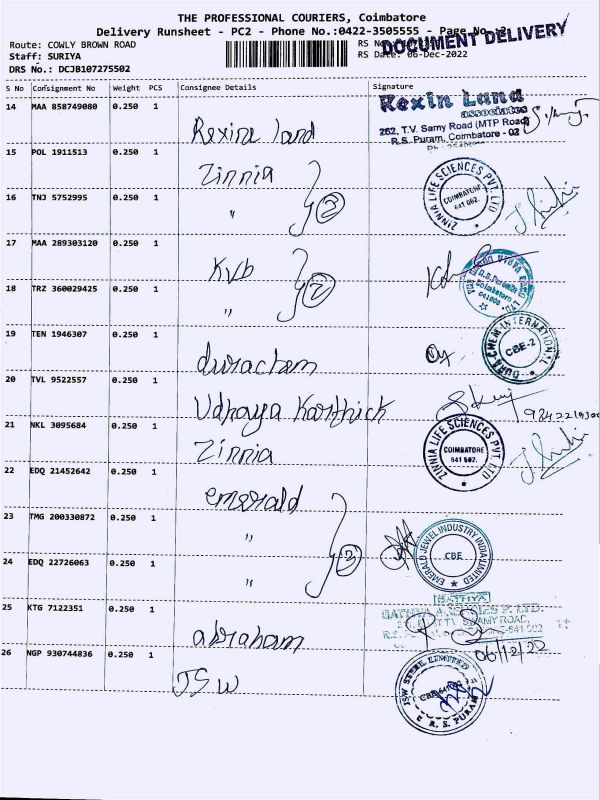 THE PROFESSIONAL COURIERS, Coimbatore
Delivery Runsheet - PC2 - Phone No.:0422-3505555 - Page No. 2
DOCUMENT DELIVERY
Route: COWLY BROWN ROAD
Staff: SURIYA
DRS No.: DCJB107275502
RS No
RS Date: 06-Dec-2022
S No Consignment No Weight PCS Consignee Details Signature
14 MAA 858749080 0.250 1 Rexine land
Rexin Land
associates
262, T.V. Samy Road (MTP Road)
R.S. Puram, Coimbatore - 02
15 POL 1911513 0.250 1 Zinnia
16 TNJ 5752995 0.250 1 "
2
ZINNIA LIFE SCIENCES PVT. LTD
COIMBATORE
641 002.
17 MAA 289303120 0.250 1 Kvb
18 TRZ 360029425 0.250 1 "
2
R.S. Puram
Coimbatore
641002
19 TEN 1946307 0.250 1 durachem
DURA CHEM INTERNATIONAL
CBE-2
20 TVL 9522557 0.250 1 Udhaya Karthick
21 NKL 3095684 0.250 1 Zinnia
ZINNIA LIFE SCIENCES PVT LTD
COIMBATORE
641 002.
22 EDQ 21452642 0.250 1 emerald
23 TMG 200330872 0.250 1 "
24 EDQ 22726063 0.250 1 "
3
EMERALD JEWEL INDUSTRY INDIA LIMITED
CBE
25 KTG 7122351 0.250 1 abraham
SATHYA
06/12/22
26 NGP 930744836 0.250 1 JSW
JSW STEEL LIMITED
R. S. PURAM